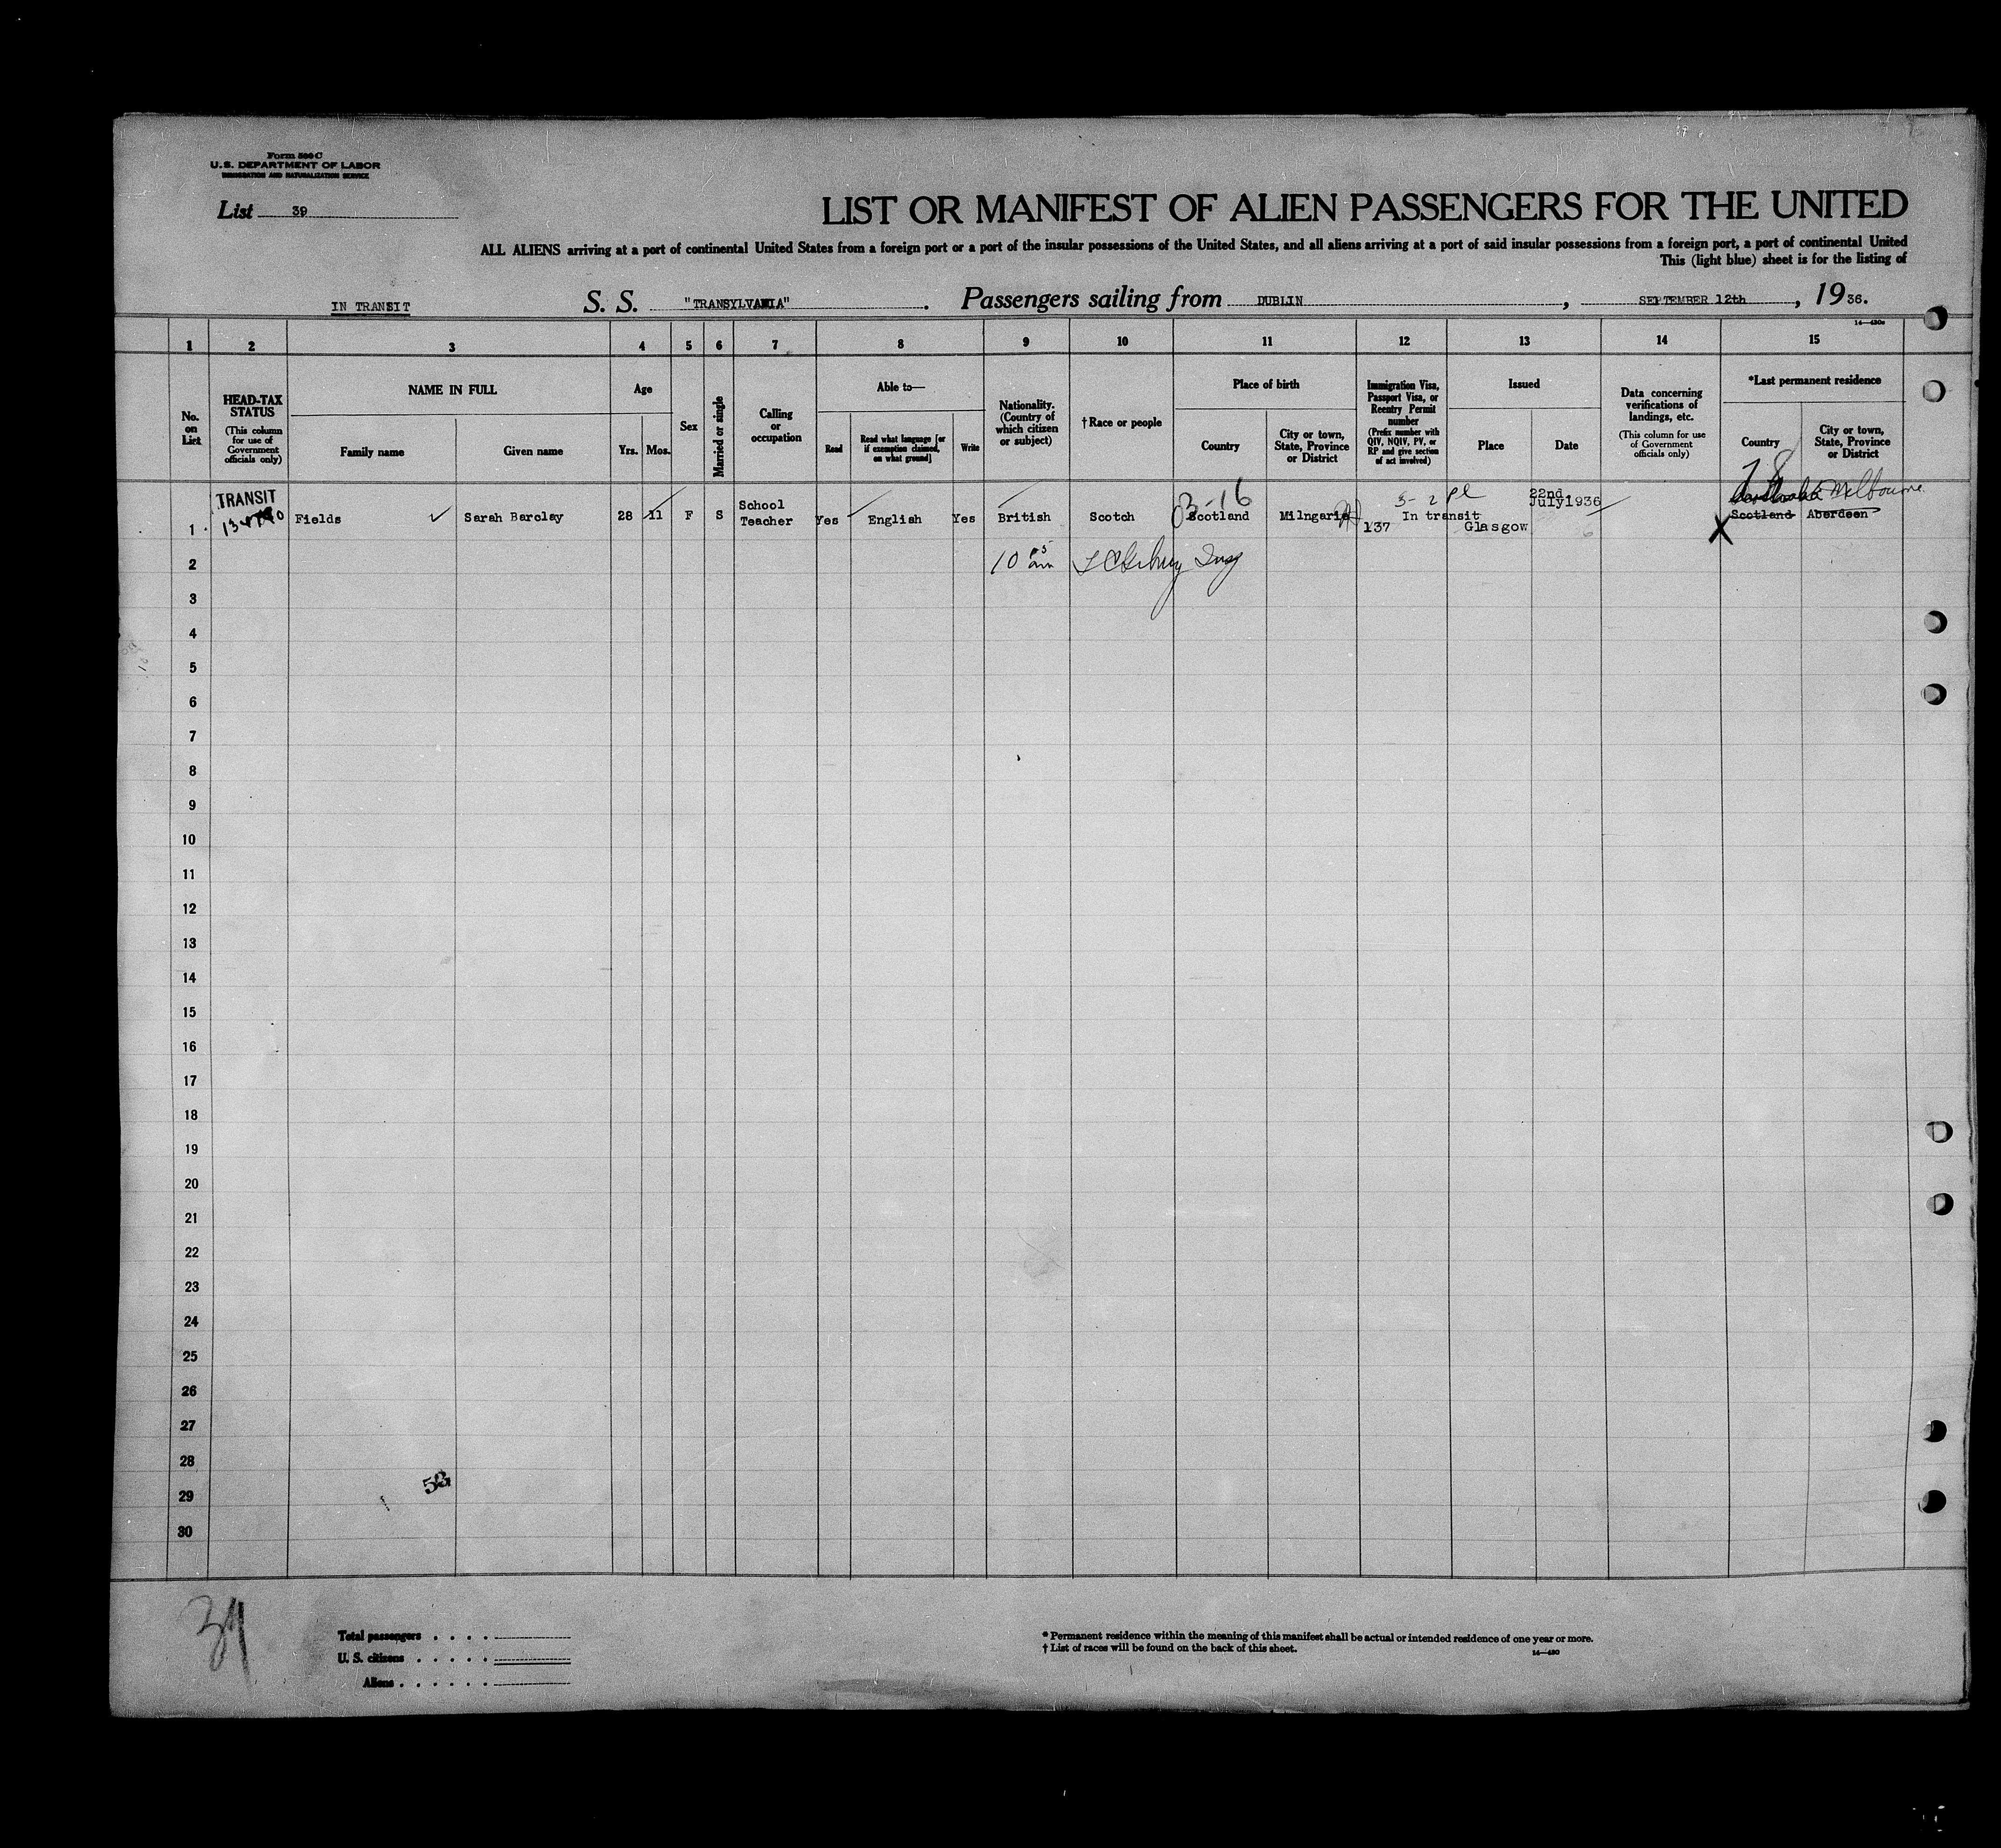 Form 500 C
U.S. DEPARTMENT OF LABOR
IMMIGRATION AND NATURALIZATION SERVICE
List 39
LIST OR MANIFEST OF ALIEN PASSENGERS FOR THE UNITED
ALL ALIENS arriving at a port of continental United States from a foreign port or a port of the insular possessions of the United States, and all aliens arriving at a port of said insular possessions from a foreign port, a port of continental United
This (light blue) sheet is for the listing of
IN TRANSIT S. S. "TRANSYLVANIA". Passengers sailing from DUBLIN, SEPTEMBER 12th, 1936.
1 2 3 4 5 6 7 8 9 10 11 12 13 14 15
No. on List
HEAD-TAX STATUS
(This column for use of Government officials only)
NAME IN FULL
Family name Given name
Age
Yrs. Mos.
Sex
Married or single
Calling or occupation
Able to—
Read
Read what language [or if exemption claimed, on what ground]
Write
Nationality. (Country of which citizen or subject)
†Race or people
Place of birth
Country
City or town, State, Province or District
Immigration Visa, Passport Visa, or Reentry Permit number
(Prefix number with QIV, NQIV, PV, or RP and give section of act involved)
Issued
Place Date
Data concerning verifications of landings, etc.
(This column for use of Government officials only)
*Last permanent residence
Country
City or town, State, Province or District
TRANSIT
1 Fields Sarah Barclay 28 11 F S School Teacher Yes English Yes British Scotch Scotland Milngarie 137 In transit Glasgow 22nd July 1936 Scotland Aberdeen
3-16
Melbourne
X
2 10 am
3
4
5
6
7
8
9
10
11
12
13
14
15
16
17
18
19
20
21
22
23
24
25
26
27
28
29
30
53
39
Total passengers . . . .
U. S. citizens . . . . .
Aliens . . . . . .
* Permanent residence within the meaning of this manifest shall be actual or intended residence of one year or more.
† List of races will be found on the back of this sheet.
14—430